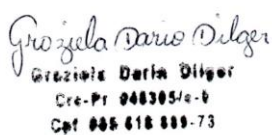 Graziela Dario Dilger
Graziela Dario Dilger
Crc-Pr 048305/o-0
Cpf 885 618 889-73